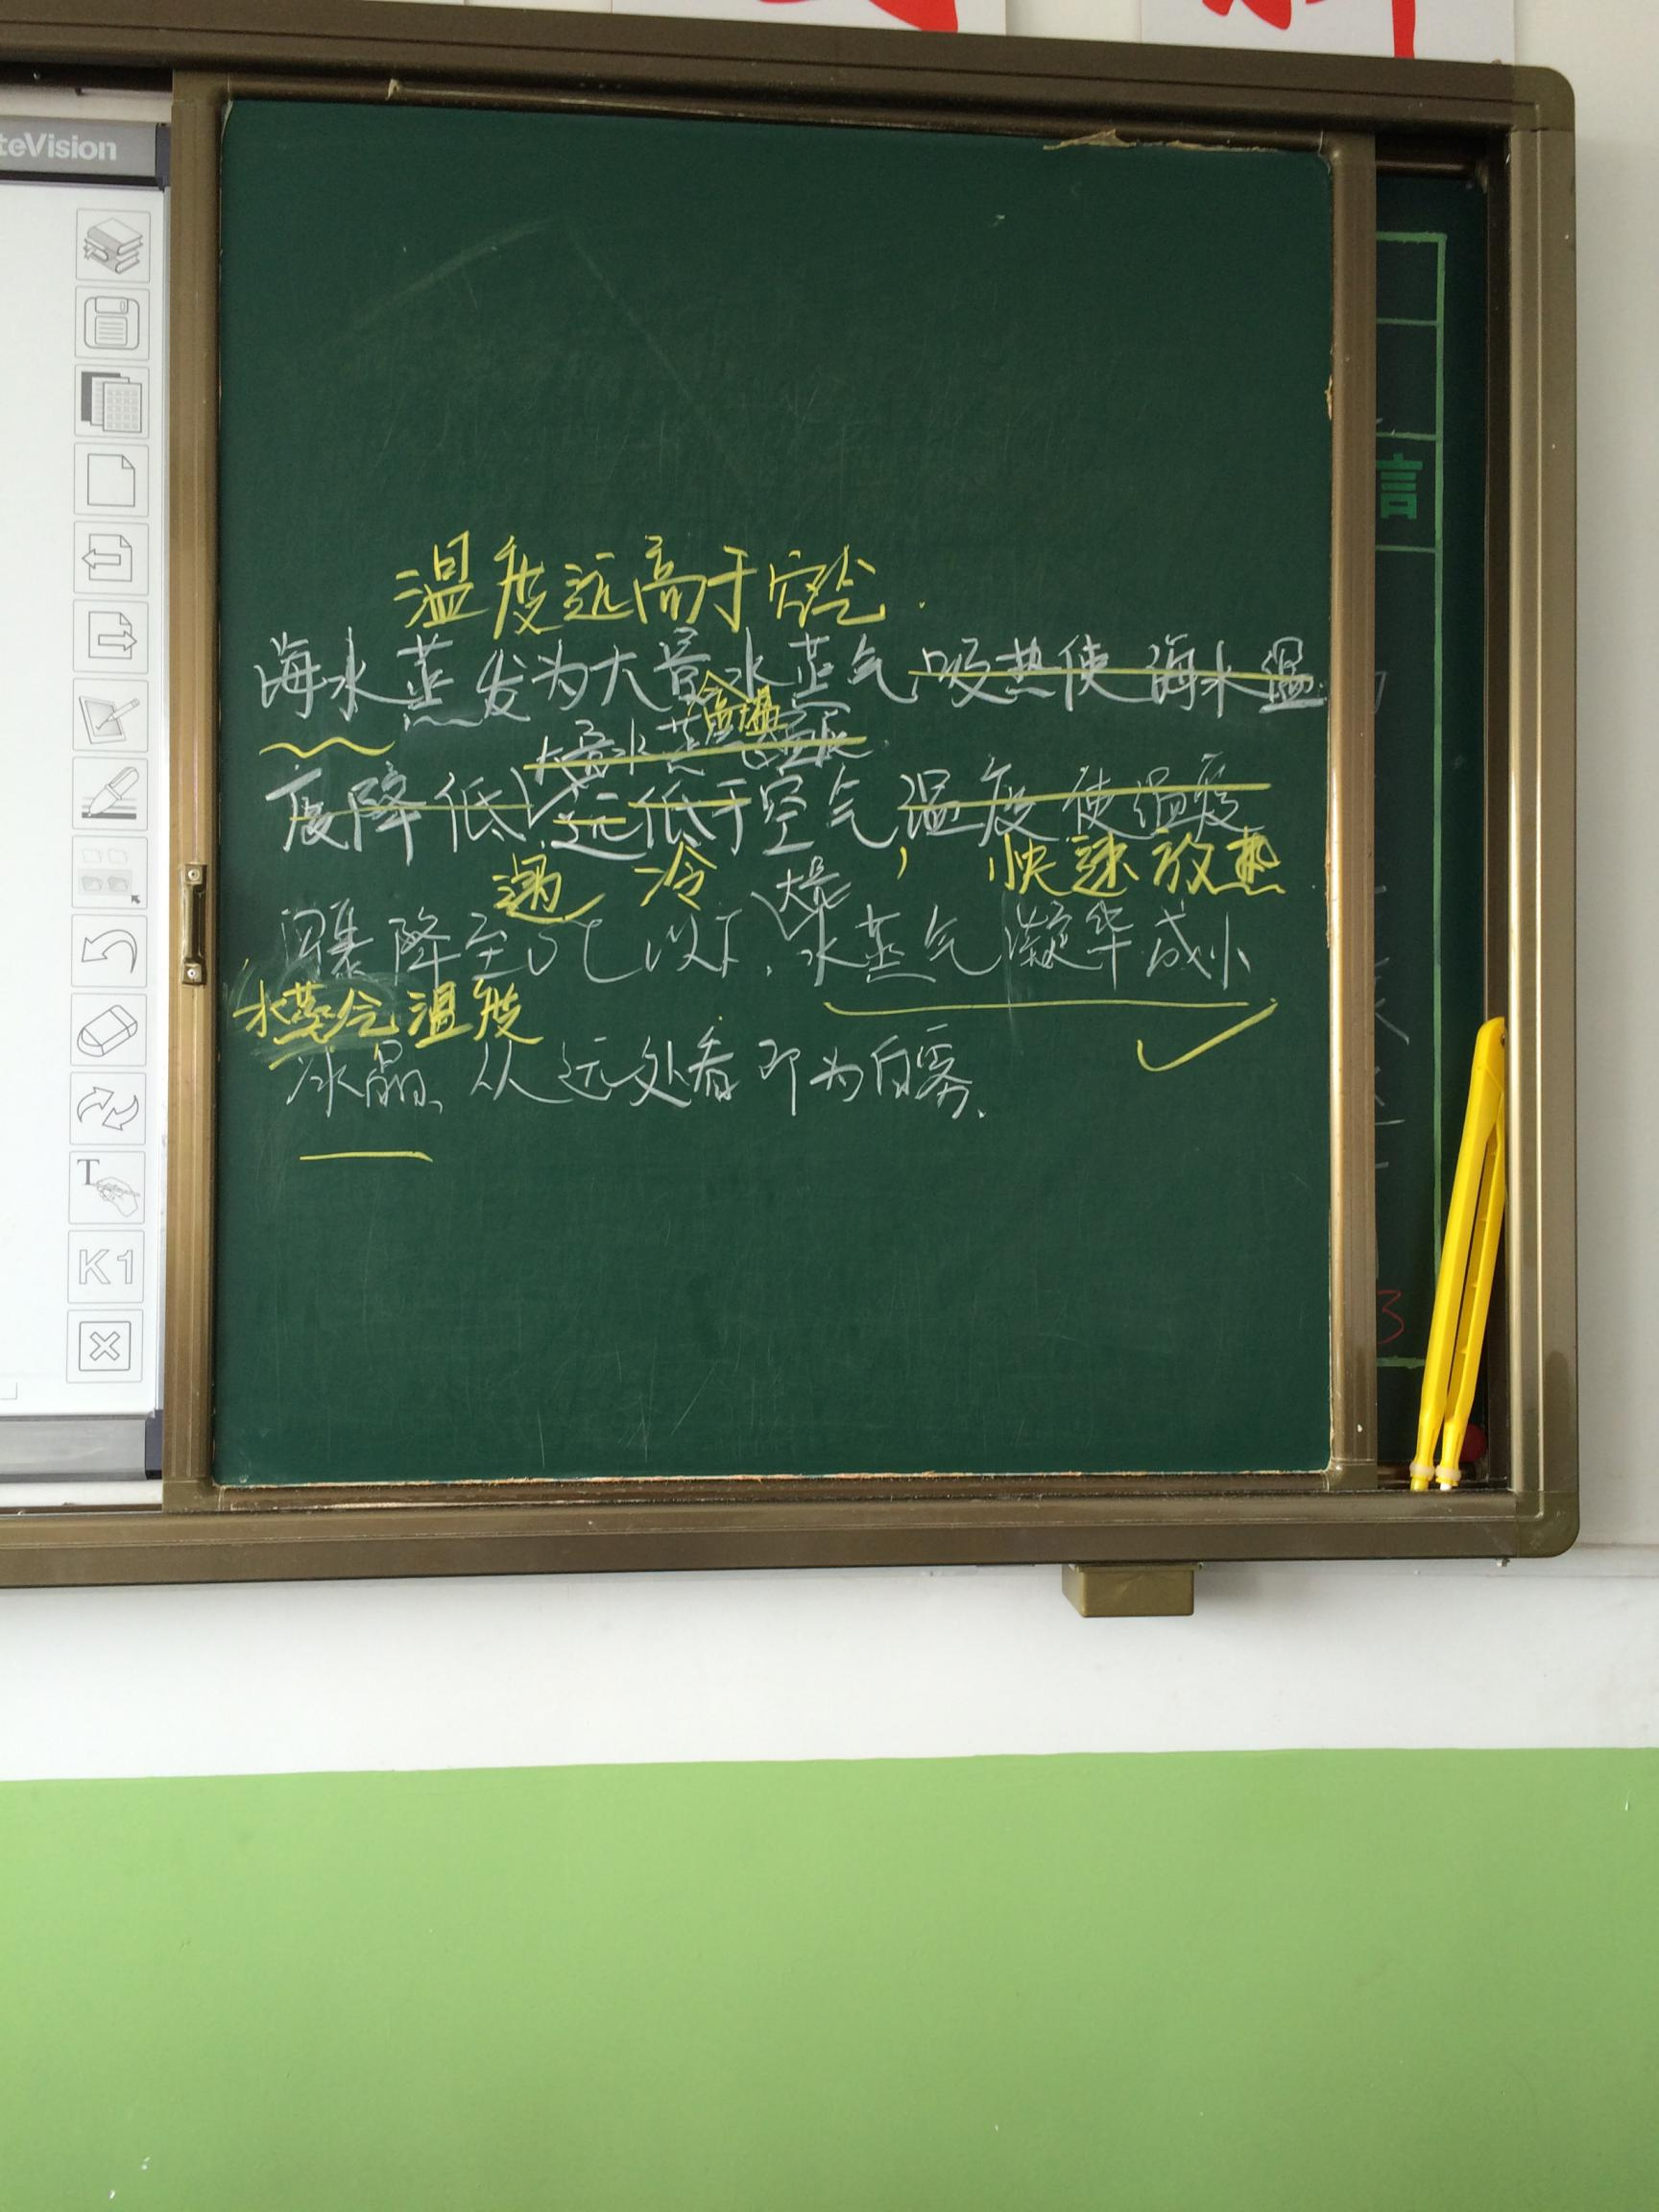 teVision
K1
T
言
3
温度远高于空气.
海水蒸发为大量水蒸气 吸热使海水温
高温
大量水蒸气温度
度降低 远低于空气温度 使温度
遇冷 , 快速放热
大量
骤降至0℃以下, 水蒸气凝华成小
水蒸气温度
冰晶, 从远处看即为白雾.